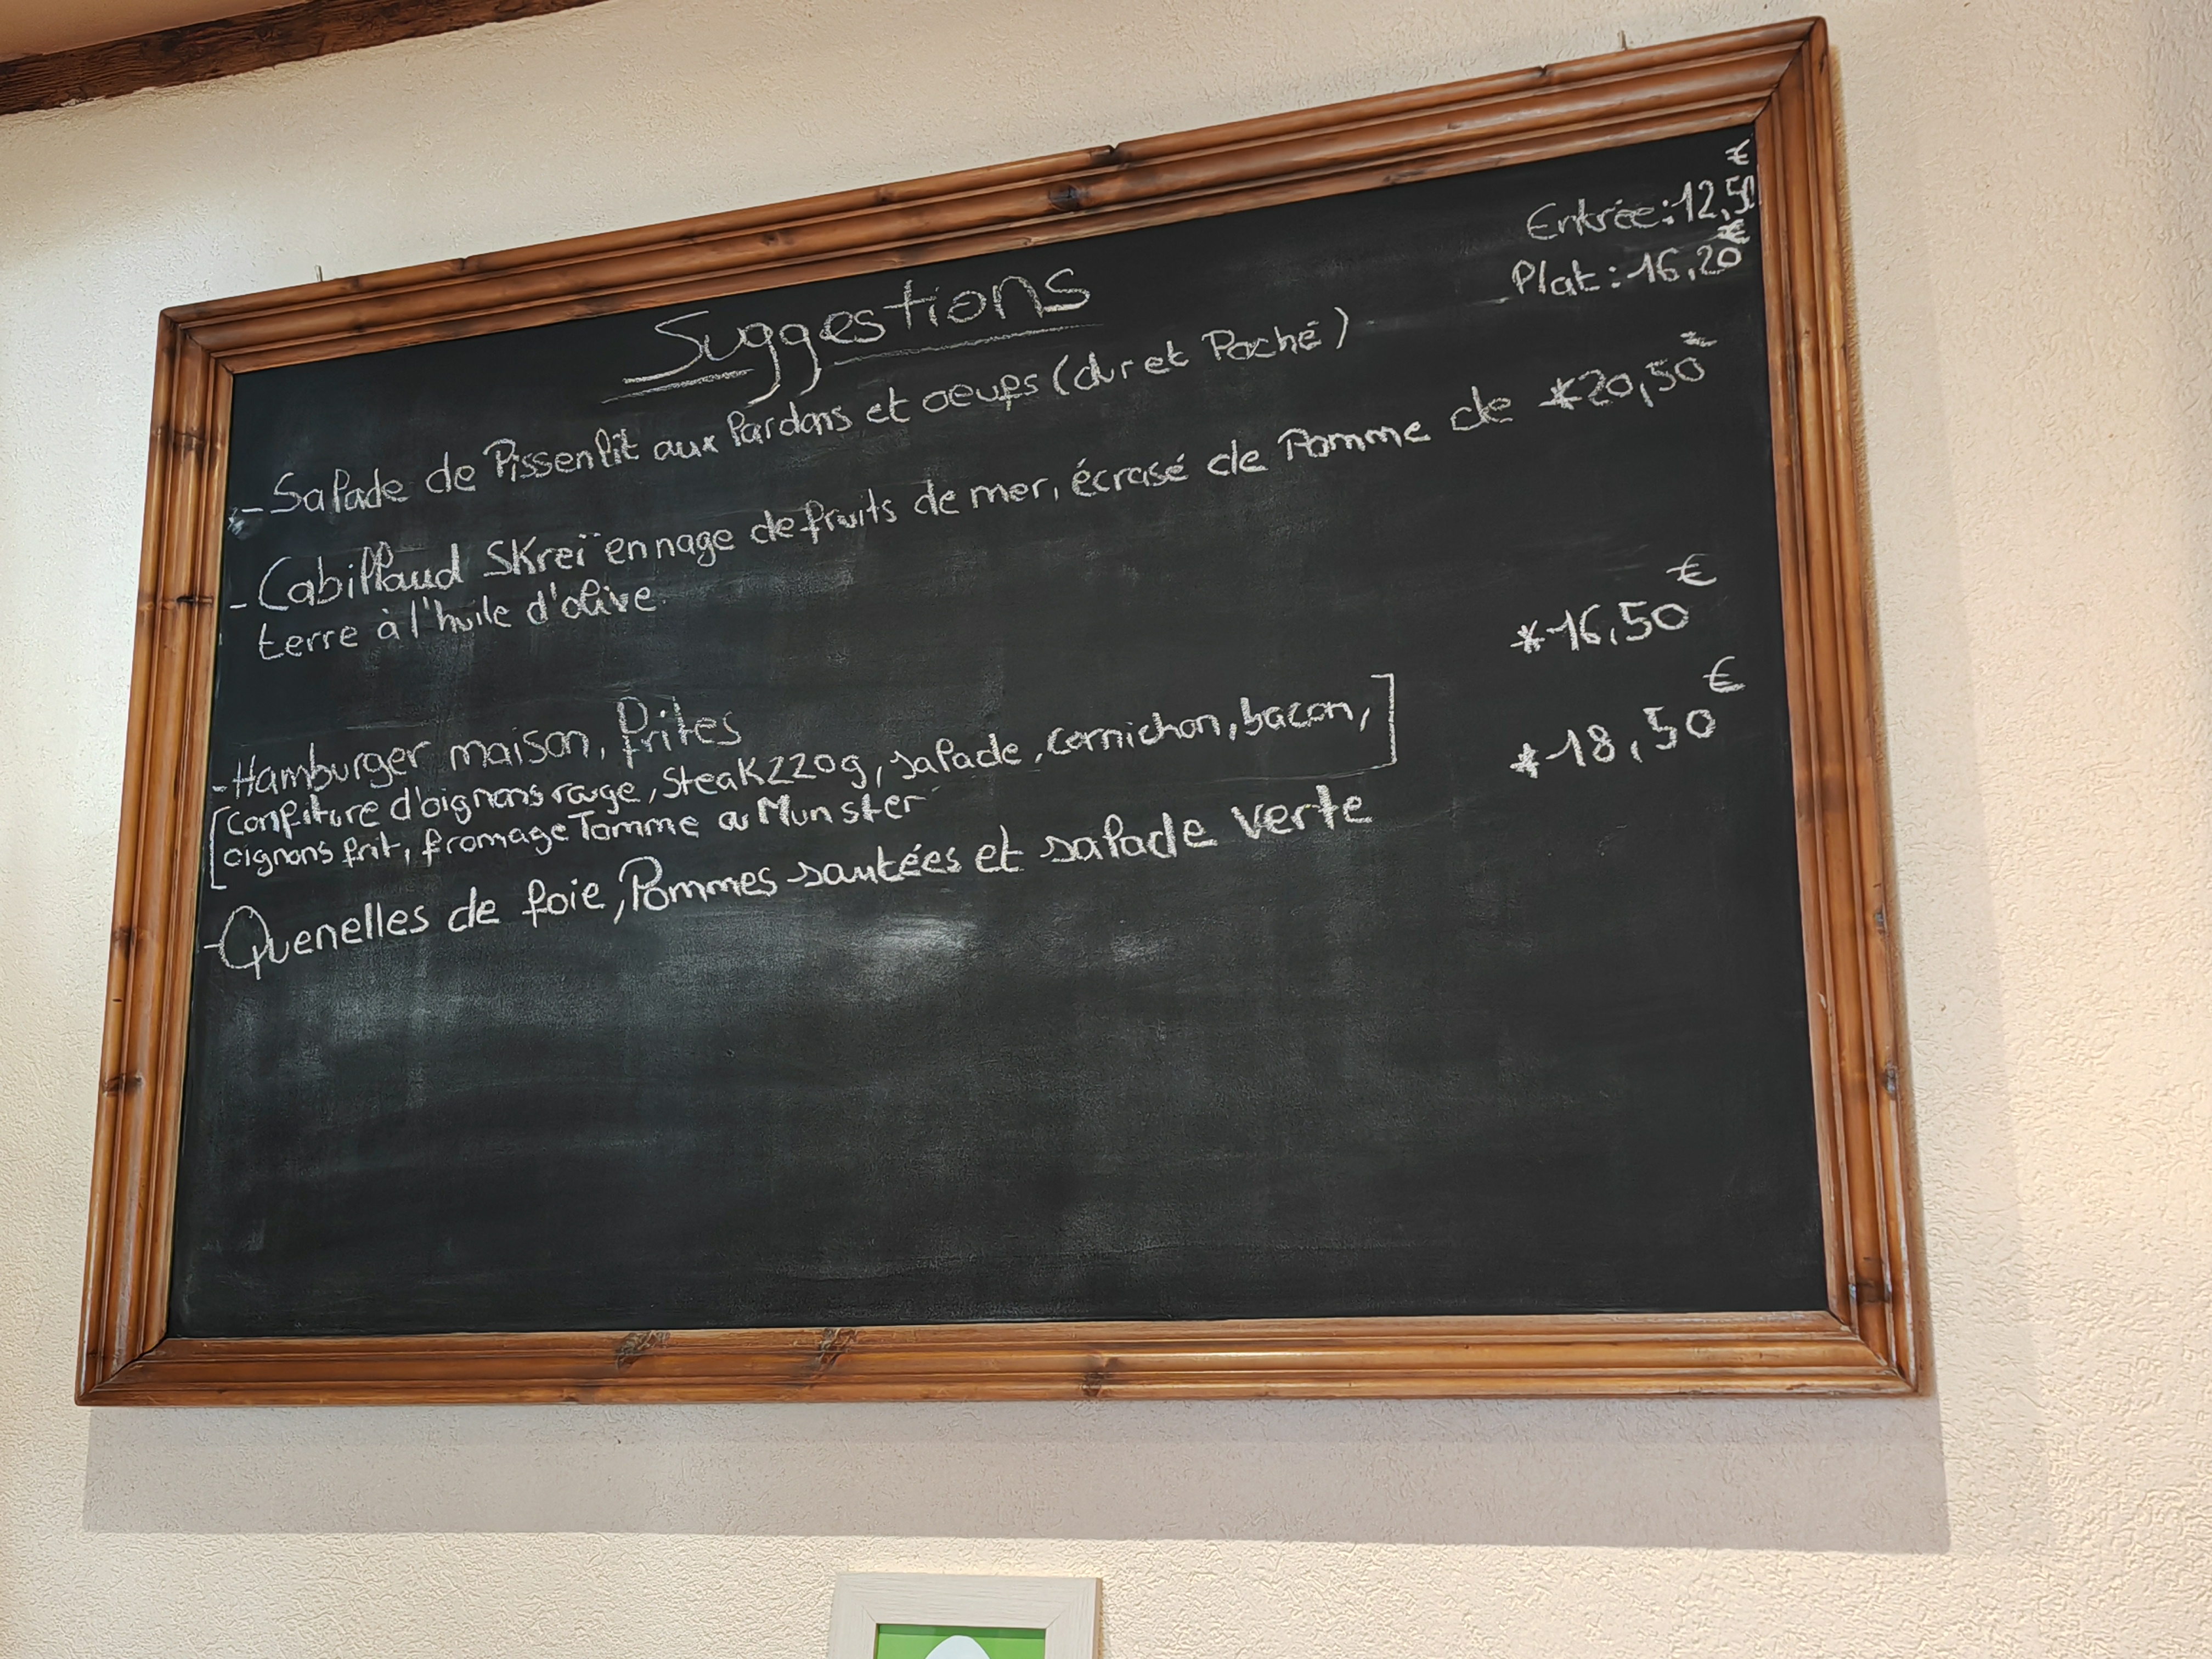 Suggestions
Entrée:12,50€
Plat:16,20€
- Salade de Pissenlit aux lardons et oeufs (dur et Poché)
- Cabillaud Skreï en nage de fruits de mer, écrasé de Pomme de *20,50€
terre à l'huile d'olive.
- Hamburger maison, frites *16,50€
[confiture d'oignons rouge, Steak 220g, salade, cornichon, bacon,]
oignons frit, fromage Tomme ou Munster
- Quenelles de foie, Pommes sautées et salade verte *18,50€